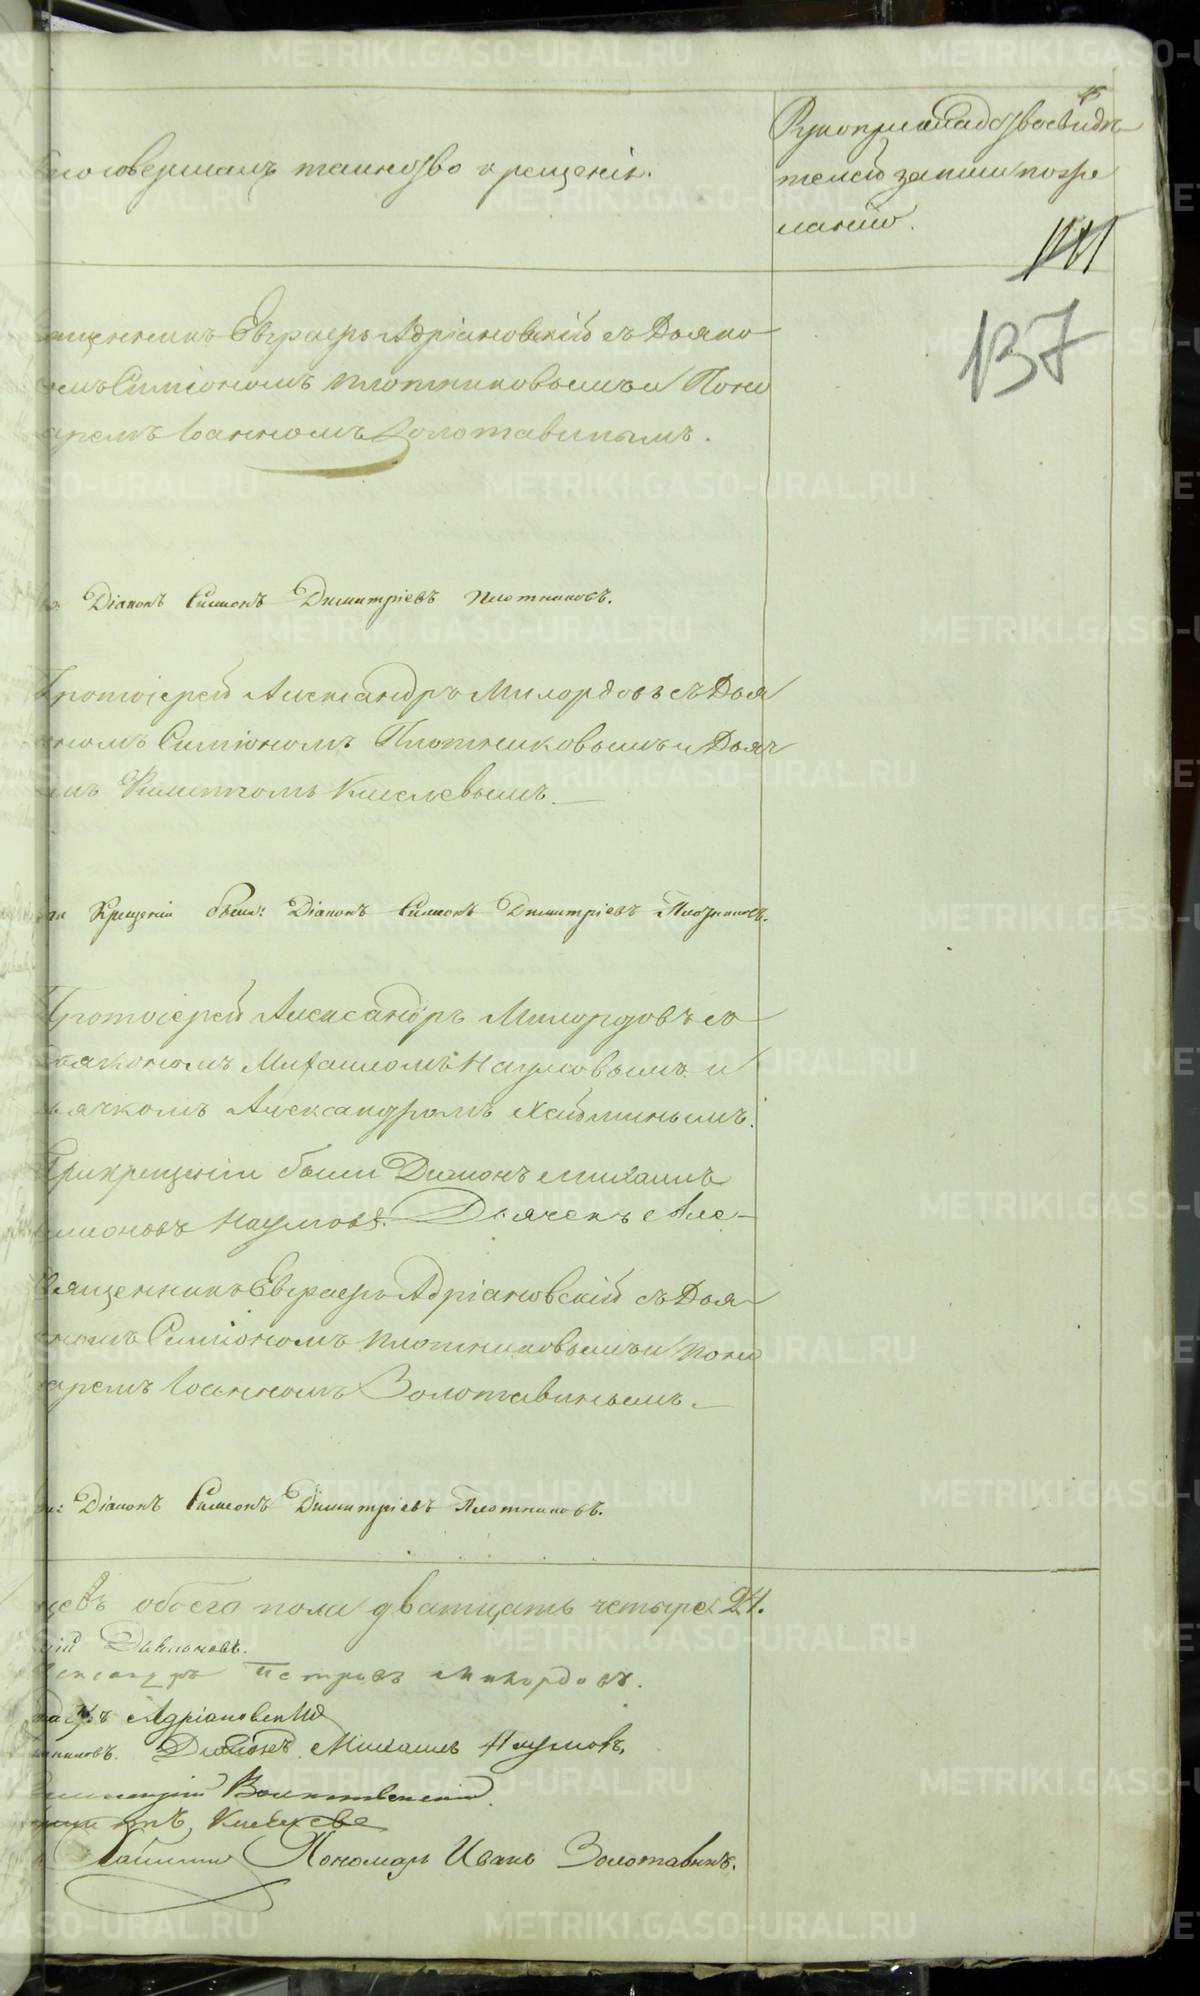 совершалъ таинство крещенія.
Рукоприкладство свидѣ
телей записи по же
ланію.
137
Евграфъ Адріановскій съ Діяко
Симіономъ Плотниковымъ и Поно
Іоанномъ Золотавинымъ.
Діаконъ Симеонъ Димитріевъ Плотниковъ.
Протоіерей Александръ Милордовъ съ Дья
Симіономъ Плотниковымъ и Дьяч
Филиппомъ Киселевымъ.
Крещеніи были: Діаконъ Симеонъ Димитріевъ Плотниковъ.
Протоіерей Александръ Милордовъ съ
Михаиломъ Наумовымъ и
Александромъ
При крещеніи были Діаконъ Михаилъ
Наумовъ. Дьячекъ Але-
Священникъ Евграфъ Адріановскій съ Дья-
Симіономъ Плотниковымъ и Поно
Іоанномъ Золотавинымъ.
Діаконъ Симеонъ Димитріевъ Плотниковъ.
обоего пола дватцать четыре 24.
Петровъ Милордовъ.
Адріановскій
Діаконъ Михаилъ Наумовъ,
Киселевъ
Пономарь Иванъ Золотавинъ.
METRIKI.GASO-URAL.RU